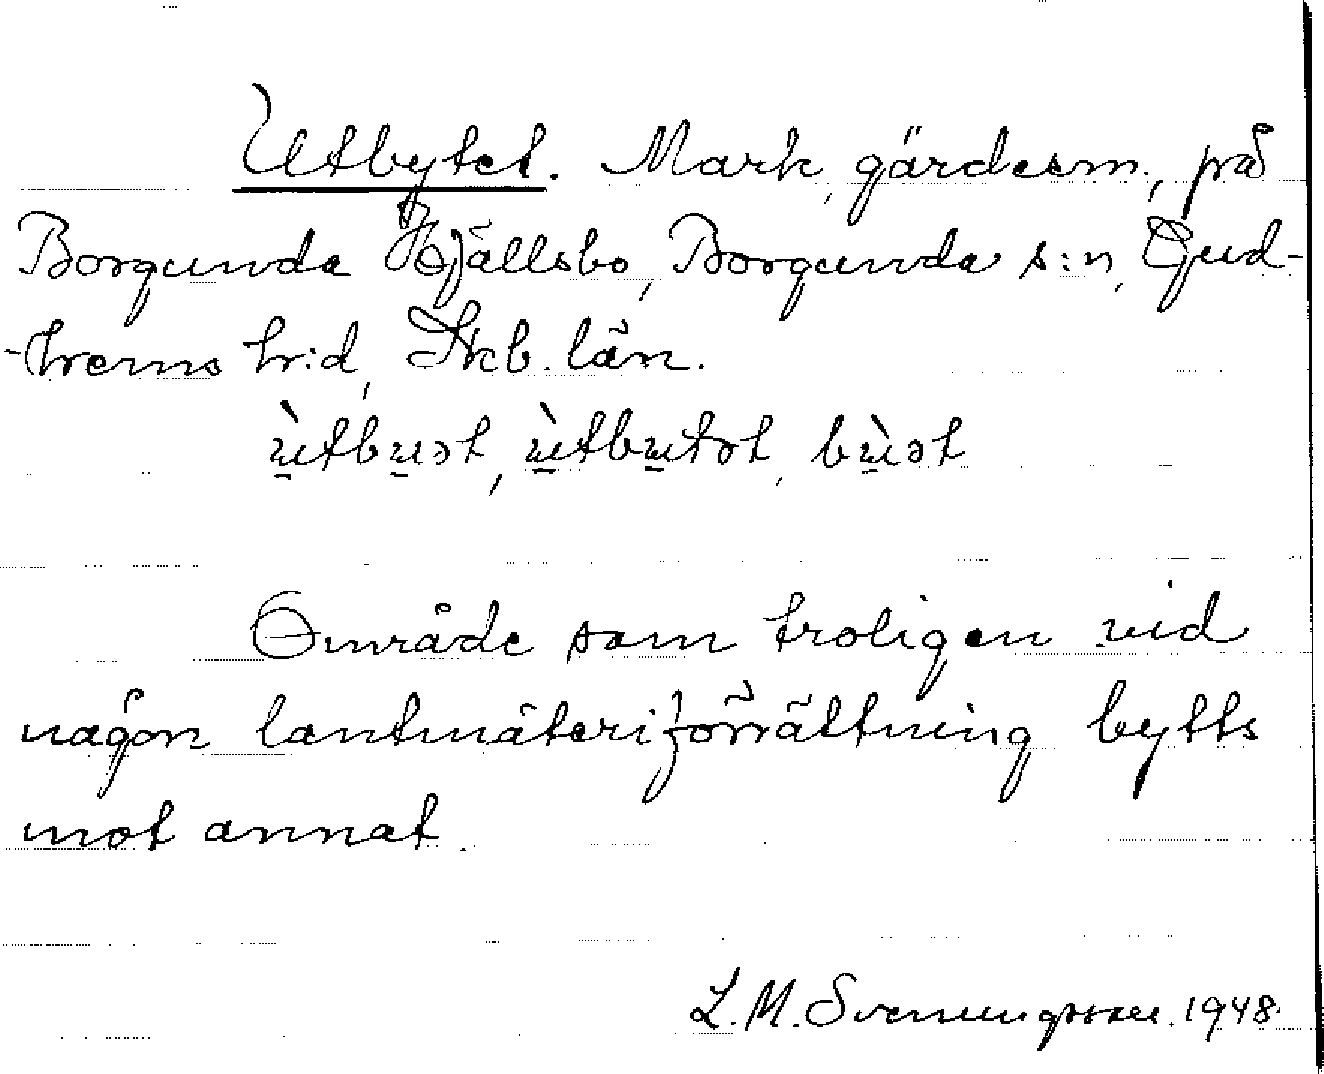 Utbytet. Mark, gärdesm., på
Borgunda Hjällsbo, Borgunda s:n, Gud-
-hems h:d, Skb. län.
ùtbut, ùtbutət, bùət
Område som troligen vid
någon lantmäteriförrättning bytts
mot annat.
L.M. Svenungsson. 1948.